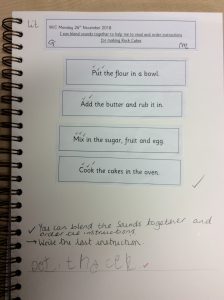 Lit
WC Monday 26th November 2018
I can blend sounds together to help me to read and order instructions
for making Rock Cakes
G
Put the flour in a bowl.
Add the butter and rub it in.
Mix in the sugar, fruit and egg.
Cook the cakes in the oven.
✓ You can blend the sounds together and
order the instructions.
→ Write the last instruction.